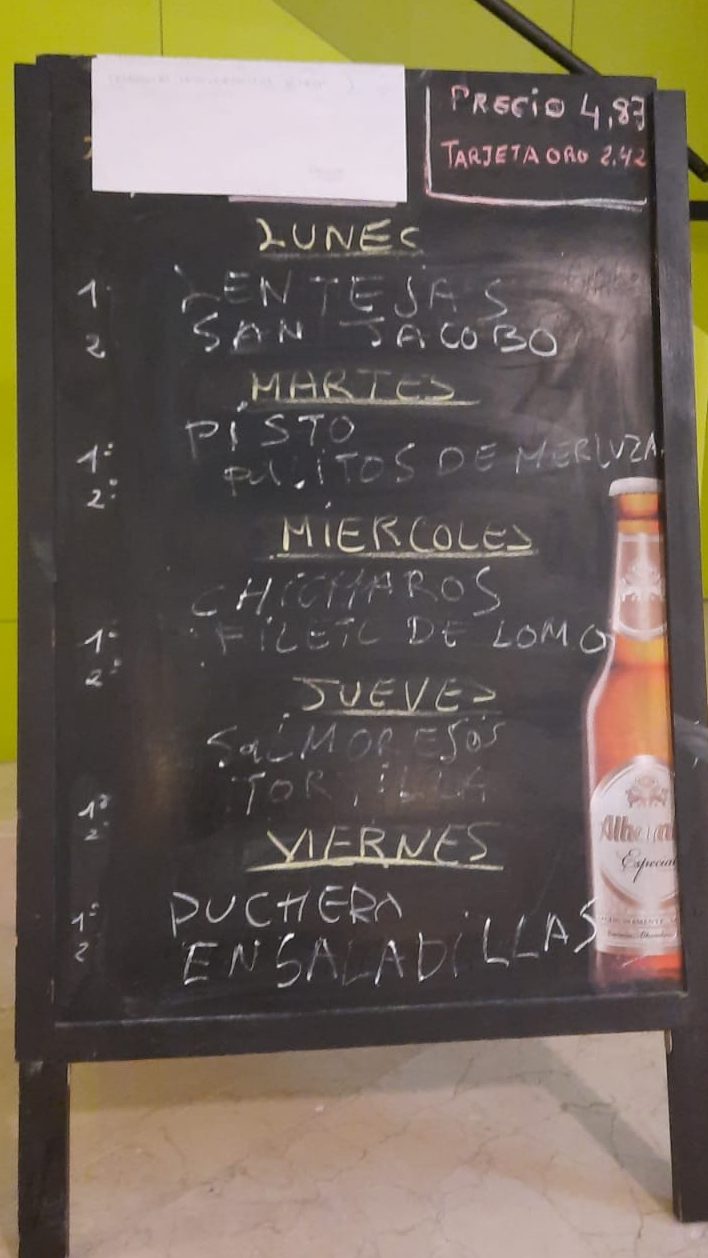 PRECIO 4,87
TARJETA ORO 2.42
LUNES
1º LENTEJAS
2 SAN JACOBO
MARTES
PISTO
1º PALITOS DE MERLUZA
2º
MIERCOLES
CHICHAROS
1º FILETE DE LOMO
2º
JUEVES
SALMOREJOS
TORTILLA
1º
2º
VIERNES
1º PUCHERO
2 ENSALADILLAS
Alhambra
Especial